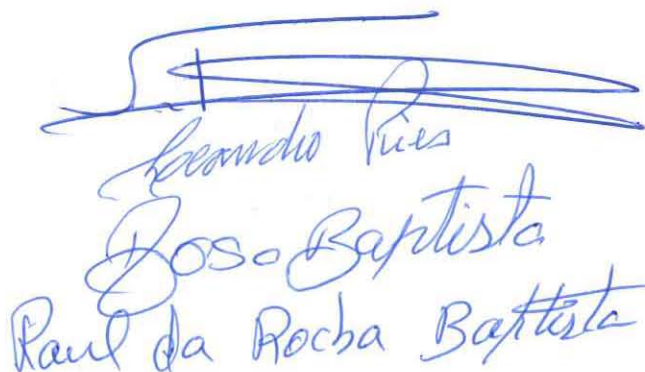 Leandro Pires
Rosa Baptista
Raul da Rocha Baptista